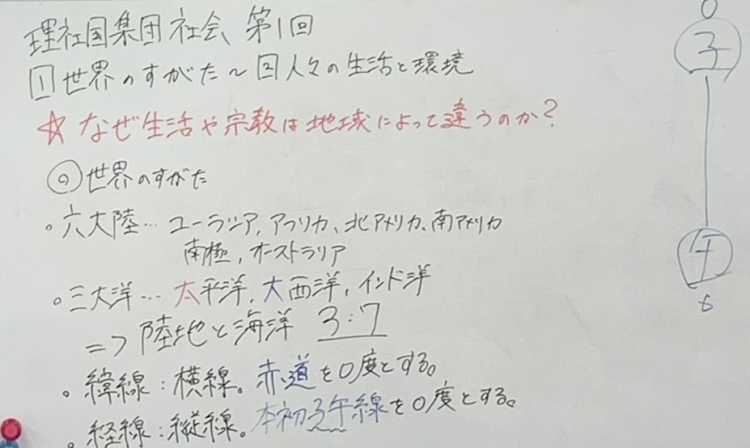 理社国集団 社会 第1回
1 世界のすがた〜国人々の生活と環境
☆ なぜ生活や宗教は地域によって違うのか?
◎ 世界のすがた
。六大陸… ユーラシア, アフリカ、北アメリカ、南アメリカ
南極, オーストラリア
。三大洋… 太平洋, 大西洋, インド洋
=> 陸地と海洋 3:7
。緯線:横線。赤道を0度とする。
。経線:縦線。本初子午線を0度とする。
0
子
午
6